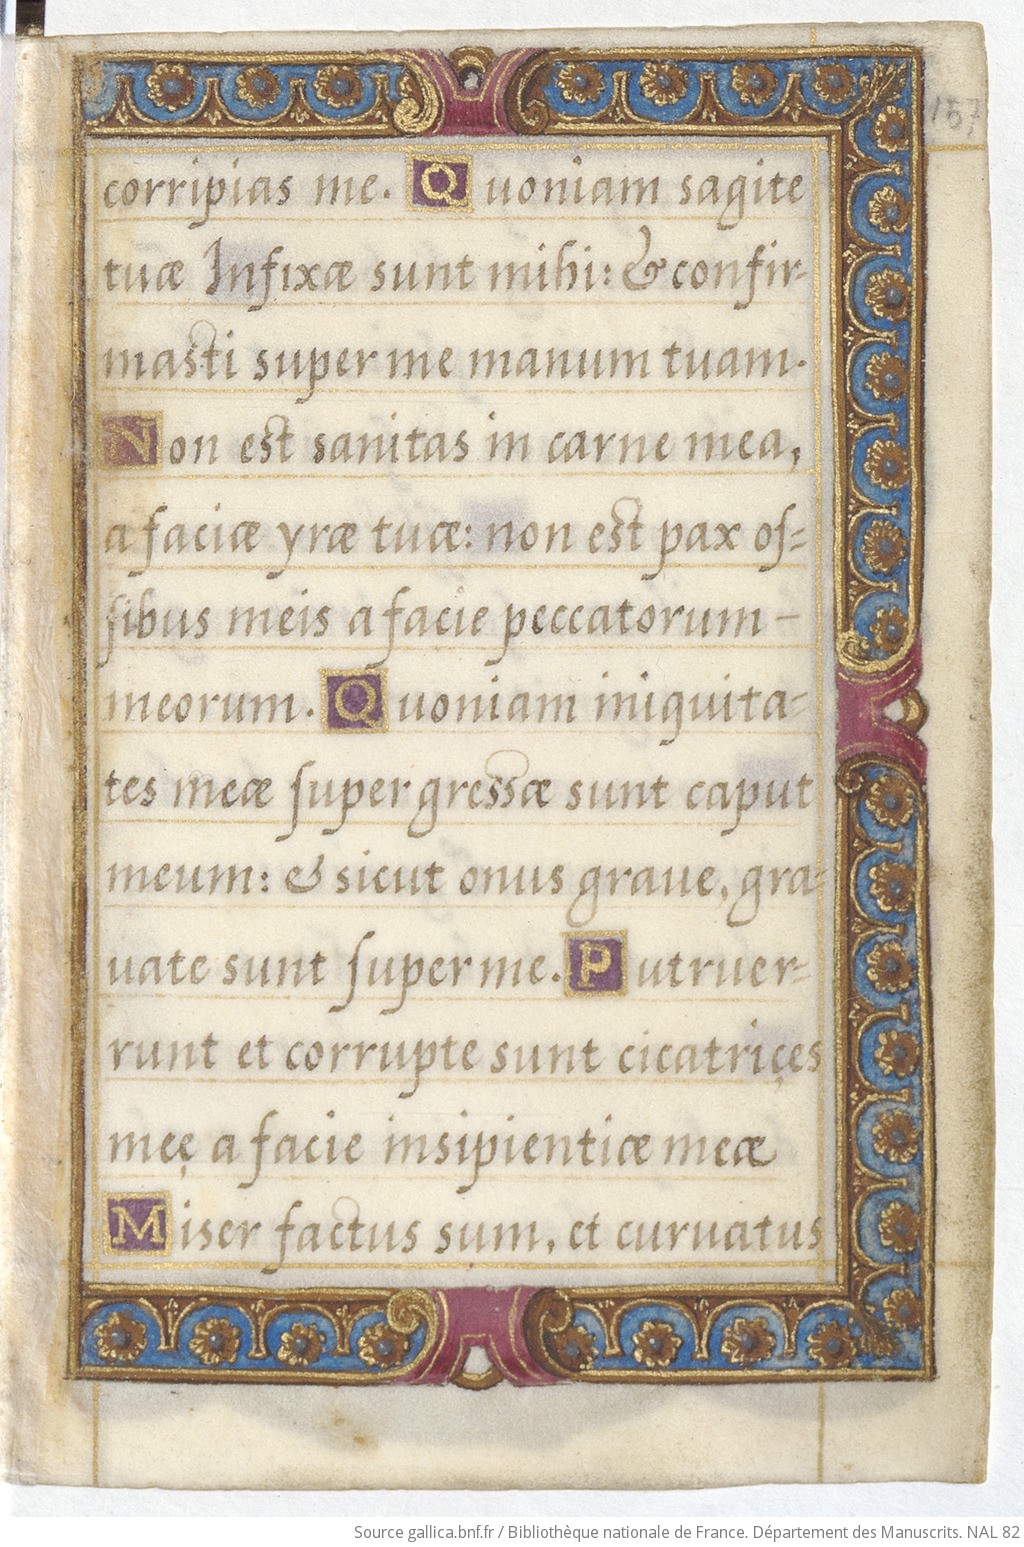 157
corripias me. Quoniam sagite
tuæ Infixæ sunt mihi: & confir-
masti super me manum tuam.
Non est sanitas in carne mea,
a faciæ yræ tuæ: non est pax oſ=
ſibus meis a facie peccatorum –
meorum. Quoniam iniquita=
tes meæ ſupergressæ sunt caput
meum: & sicut onus graue, gra=
uate sunt ſuper me. Putruer=
runt et corrupte sunt cicatriçes
meę a facie insipientiæ meæ
Miser factus sum, et curuatus
Source gallica.bnf.fr / Bibliothèque nationale de France. Département des Manuscrits. NAL 82